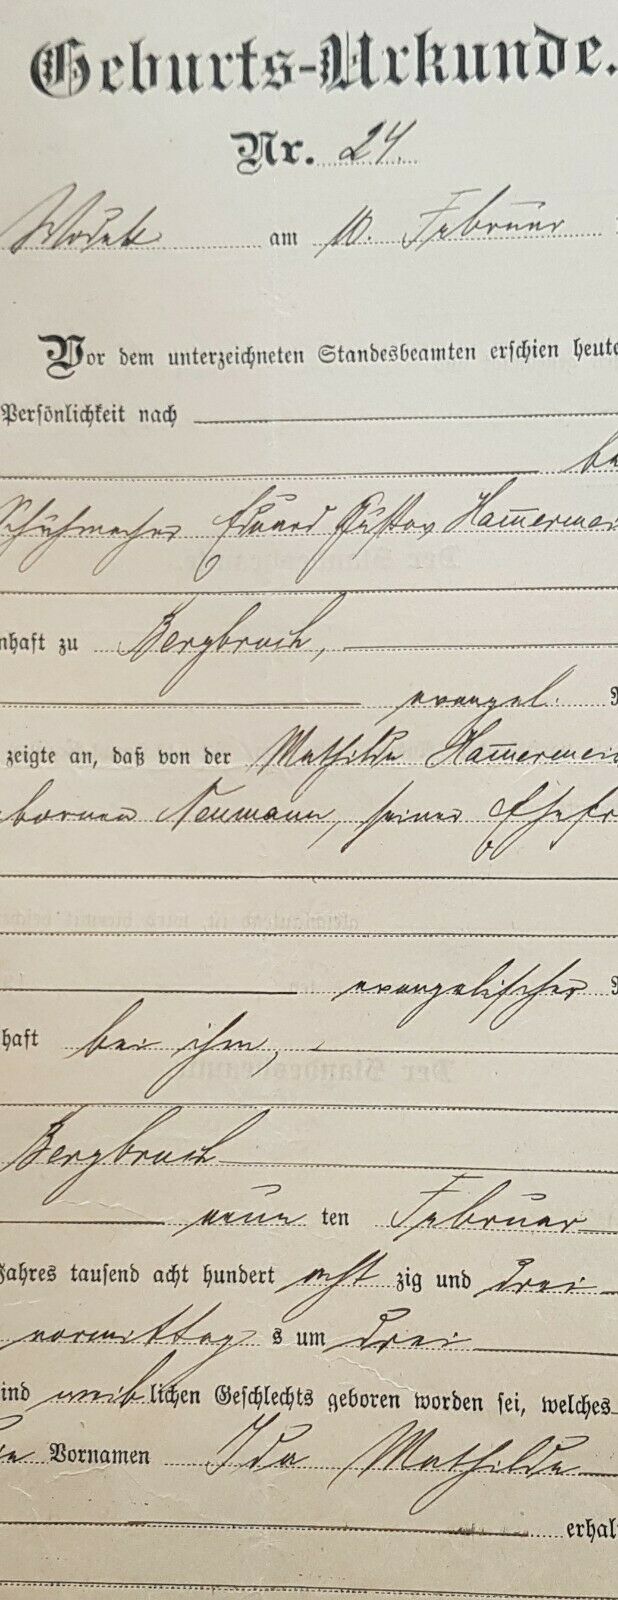 Geburts-Urkunde.
Nr. 24.
am 10. Februar
Vor dem unterzeichneten Standesbeamten erschien heute
Persönlichkeit nach
be
Schuhmacher Eduard Gustav Ham̅ermei
nhaft zu Bergbruch,
evangel.
zeigte an, daß von der Mathilde Ham̅ermei
bornen Neumann, seiner Ehefr
evangelischer
haft bei ihm,
Bergbruch
neun ten Februar
Jahres tausend acht hundert acht zig und drei
vormittag s um drei
ind weib lichen Geschlechts geboren worden sei, welches
die Vornamen Ida Mathilde
erhal